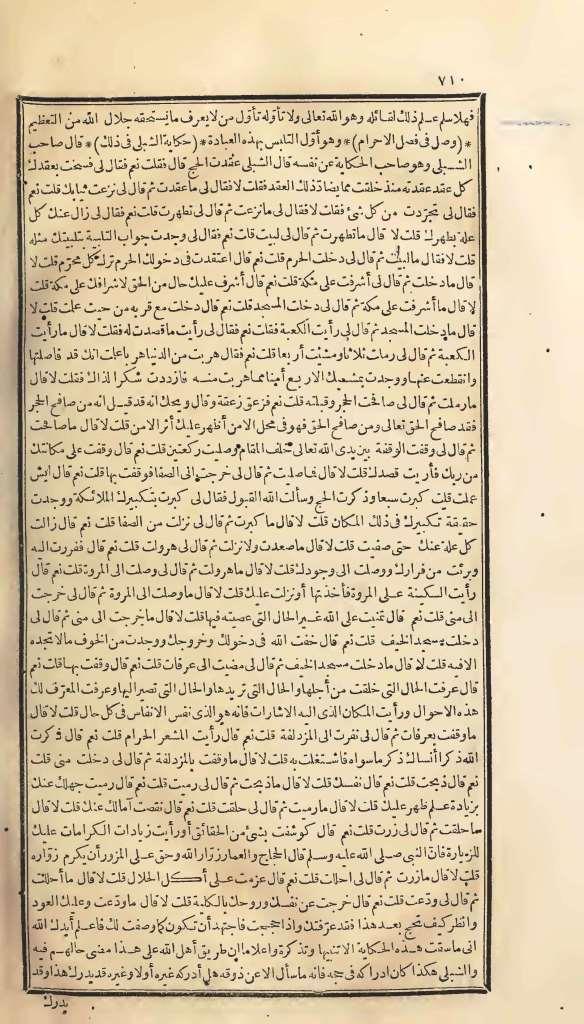 ٧١٠
فهلا سلم علم ذلك لقائله وهو الله تعالى ولا تأوله تأول من لا يعرف ما يستحقه جلال الله من التعظيم
*(وصل في فصل الاحرام)* وهو أول التلبس بهذه العبادة *(حكاية الشبلي في ذلك)* قال صاحب
الشبلي وهو صاحب الحكاية عن نفسه قال الشبلي عقدت الحج قال فقلت نعم فقال لي فسخت بعقدك
كل عقد عقدته منذ خلقت مما يضاد ذلك العقد فقلت لا فقال لي ما عقدت ثم قال لي نزعت ثيابك قلت نعم
فقال لي تجردت من كل شئ فقلت لا فقال لي ما نزعت ثم قال لي تطهرت قلت نعم فقال لي زال عنك كل
علة بطهرك قلت لا قال ما تطهرت ثم قال لي لبيت قلت نعم فقال لي وجدت جواب التلبية بتلبيتك مثله
قلت لا فقال ما لبيت ثم قال لي دخلت الحرم قلت نعم قال اعتقدت في دخولك الحرم ترك كل محرم قلت لا
قال ما دخلت ثم قال لي أشرفت على مكة قلت نعم قال أشرف عليك حال من الحق لاشرافك على مكة قلت
لا قال ما أشرفت على مكة ثم قال لي دخلت المسجد قلت نعم قال دخلت مع قربه من حيث علمت قلت لا
قال ما دخلت المسجد ثم قال لي رأيت الكعبة فقلت نعم فقال لي رأيت ما قصدت له فقلت لا قال ما رأيت
الكعبة ثم قال لي رملت ثلاثا ومشيت أربعا قلت نعم فقال هربت من الدنيا هربا علمت انك قد فاصلتها
وانقطعت عنها ووجدت بمشيك الاربع أمنا مما هربت منه فازددت شكرا لذلك فقلت لا قال
ما رملت ثم قال لي صافحت الحجر وقبلته قلت نعم فزعق زعقة وقال ويحك انه قد قيل انه من صافح الحجر
فقد صافح الحق تعالى ومن صافح الحق فهو في محل الامن أظهر عليك أثر الامن قلت لا قال ما صافحت
ثم قال لي وقفت الوقفة بين يدي الله تعالى خلف المقام وصليت ركعتين قلت نعم قال وقفت على مكانتك
من ربك فأريت قصدك قلت لا قال فما صليت ثم قال لي خرجت الى الصفا فوقفت بها قلت نعم قال ايش
عملت قلت كبرت سبعا وذكرت الحج وسألت الله القبول فقال لي كبرت بتكبيرك الملائكة ووجدت
حقيقة تكبيرك في ذلك المكان قلت لا قال ما كبرت ثم قال لي نزلت من الصفا قلت نعم قال زالت
كل علة عنك حتى صفيت قلت لا قال ما صعدت ولا نزلت ثم قال لي هرولت قلت نعم قال ففررت اليه
وبرئت من فرارك ووصلت الى وجودك قلت لا قال ما هرولت ثم قال لي وصلت الى المروة قلت نعم قال
رأيت السكينة على المروة فأخذتها أو نزلت عليك قلت لا قال ما وصلت الى المروة ثم قال لي خرجت
الى منى قلت نعم قال تمنيت على الله غير الحال التي عصيته فيها قلت لا قال ما خرجت الى منى ثم قال لي
دخلت مسجد الخيف قلت نعم قال خفت الله في دخولك وخروجك ووجدت من الخوف ما لا تجده
الا فيه قلت لا قال ما دخلت مسجد الخيف ثم قال لي مضيت الى عرفات قلت نعم قال وقفت بها قلت نعم
قال عرفت الحال التي خلقت من أجلها والحال التي تريدها والحال التي تصير اليها وعرفت المعرف لك
هذه الاحوال ورأيت المكان الذي اليه الاشارات فانه هو الذي نفس الانفاس في كل حال قلت لا قال
ما وقفت بعرفات ثم قال لي نفرت الى المزدلفة قلت نعم قال رأيت المشعر الحرام قلت نعم قال ذكرت
الله ذكرا أنساك ذكر ما سواه فاشتغلت به قلت لا قال ما وقفت بالمزدلفة ثم قال لي دخلت منى قلت
نعم قال ذبحت قلت نعم قال نفسك قلت لا قال ما ذبحت ثم قال لي رميت قلت نعم قال رميت جهلك عنك
بزيادة علم ظهر عليك قلت لا قال ما رميت ثم قال لي حلقت قلت نعم قال نقصت آمالك عنك قلت لا قال
ما حلقت ثم قال لي زرت قلت نعم قال كوشفت بشئ من الحقائق أو رأيت زيادات الكرامات عليك
للزيارة فان النبي صلى الله عليه وسلم قال الحجاج والعمار زوار الله وحق على المزور أن يكرم زواره
قلت لا قال ما زرت ثم قال لي احللت قلت نعم قال عزمت على أكل الحلال قلت لا قال ما أحللت
ثم قال لي ودعت قلت نعم قال خرجت عن نفسك وروحك بالكلية قلت لا قال ما ودعت وعليك العود
وانظر كيف تحج بعد هذا فقد عرفتك واذا حججت فاجتهد أن تكون كما وصفت لك فاعلم أيدك الله
اني ما سقت هذه الحكاية الا تنبيها وتذكرة واعلاما ان طريق أهل الله على هذا مضى حالهم فيه
والشبلي هكذا كان ادراكه في حجه فانه ما سأل الا عن ذوقه هل أدركه غيره أولا وغيره قد يدرك هذا وقد
يدرك